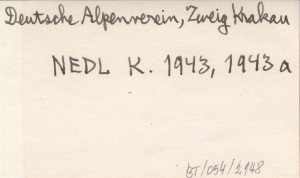 Deutsche Alpenverein, Zweig Krakau
NEDL K. 1943, 1943 a
BT/054/2148